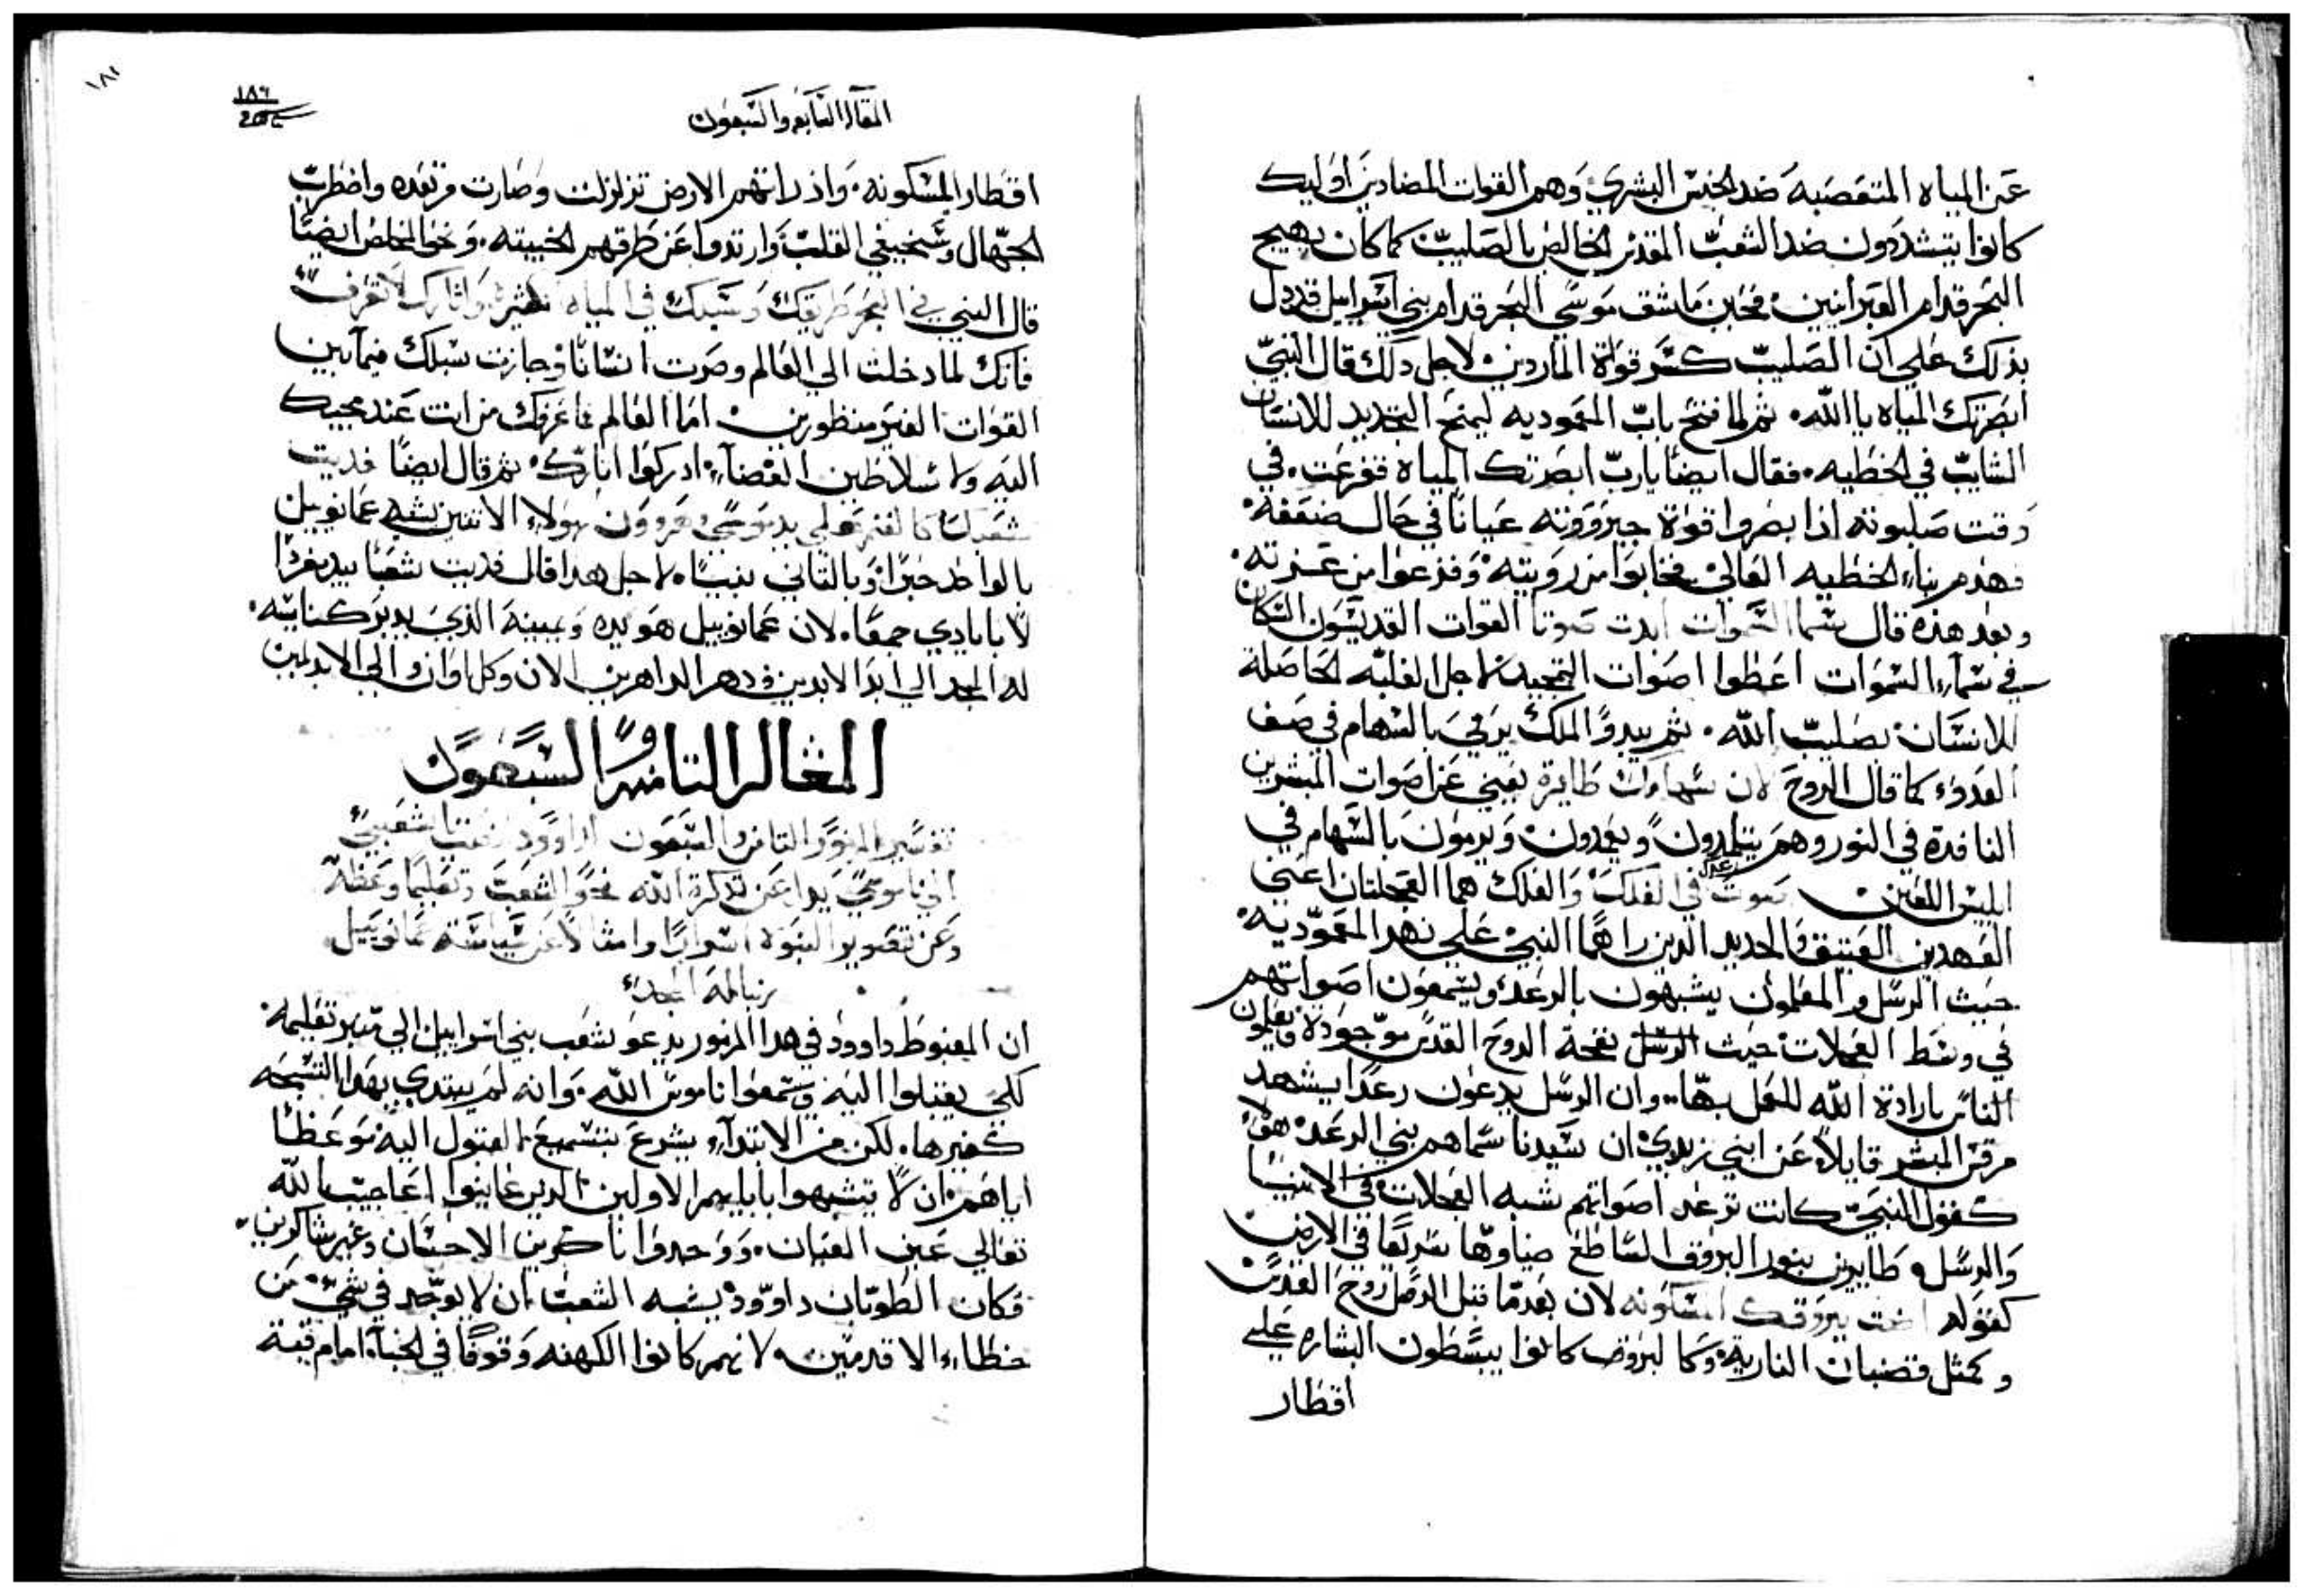 عن المياه المتعصبه ضد الجنس البشري وهم القوات المضادين اوليك
كانوا يتشددون ضد الشعب المقدس الخالص بالصليب كما كان يهيج
البحر قدام العبرانيين فحين ما شق موسي البحر قدام بني اسراييل قد دل
بذلك علي ان الصليب كسر قوة الماردين لاجل دلك قال النبي
ابصرتك المياه يا الله. ثم لما فتح باب المعموديه ليمنح التجديد للانسان
الشايب في الخطيه. فقال ايضا يا رب ابصرتك المياه ففزعت. في
وقت صلبوته اذا بصروا قوة جبروته عيانا في حال ضعفه
فهدم بناء الخطيه العالي فخابوا من رويته وفزعوا من عزته.
وبعد هذه قال السموات ابدت صوتا القوات القديسون السكان
في سماء السموات اعطوا اصوات التمجيد لاجل الغلبه الحاصلة
للانسان بصليب الله. ثم يبدو الملك يرمي بالسهام في صف
العدو كما قال الروح لان سهامك طايرة يعني عن اصوات المبشرين
النافدة في النور وهم يتلمدون ويعمدون ويرمون بالسهام في
ابليس اللعين صوت رعدك في الفلك والفلك هما العجلتان اعني
العهدين العتيق والجديد الدين راهما النبي علي نهر المعموديه
حيث الرسل والمعلمون يشبهون بالرعد ويسمعون اصواتهم
في وسط العجلات حيث الرسل نفحة الروح القدس موجودة ويعلمون
الناس بارادة الله للعمل بها. وان الرسل يدعون رعدا يشهد
مرقس المبشر قايلا عن ابني زبدي ان سيدنا سماهم بني الرعد هولاء
كقول النبي كانت ترعد اصواتهم شبه العجلات في الانبيا
والرسل وطايرين بنور البروق الساطع ضياوها سريعا في الارض
كقوله اضت بروقك المسكونه لان بعد ما قبل الرسل روح القدس
وكمثل قضبان الناريه وكالبروق كانوا يبسطون البشاره علي
اقطار
١٨٦
المقاله السابعه والسبعون
اقطار المسكونه. واذ راتهم الارض تزلزلت وصارت مرتعده واضطرب
الجهال وسخيفي القلب وارتدوا عن طرقهم الخبيثه. ونحو المخلص ايضا
قال النبي في البحر طريقك وسبلك في المياه الكثيره واثارك لا تعرف
فانك لما دخلت الي العالم وصرت انسانا وجازت سبلك فيما بين
القوات الغير منظورين اما العالم فما عرفك من انت عند مجيك
اليه ولا سلاطين الفضاء ادركوا اثارك. ثم قال ايضا هديت
شعبك كالغنم علي يد موسي وهرون بهولاء الاثنين يشير عمانوييل
بالواحد حبرا وبالثاني نبيا. لاجل هدا قال هديت شعبا بيد مفردا
لا بايادي جمعا. لان عمانوييل هو يده ويمينه الذي يدبر كنايسه.
له المجد الي ابد الابدين ودهر الداهرين الان وكل اوان والي الابد امين
المقاله الثامنه والسبعون
تفسير المزمور الثامن والسبعون لداوود انصت يا شعبي
الي ناموسي يدل عن تذكرة الله نحو الشعب وتعليما وعظه
وعن تصوير النبوة اسرارا وامثالا عن سياسة عمانوييل
ربنا له المجد
ان المغبوط داوود في هدا المزمور يدعو شعب بني اسراييل الي منبر تعليمه
لكي يقبلوا اليه ويسمعوا ناموس الله. وانه لم يبتدي بهدا التسبحه
كغيرها. لكن من الابتداء يشرع بتسميع القول اليه موعظا
اياهم ان لا يتشبهوا بابايهم الاولين الدين عاينوا اعاجيب الله
تعالي عين العيان. ووجدوا ناكرين الاحسان وغير شاكرين.
فكان الطوبان داوود يشبه الشعب ان لا يوجد في شي من
خطاء الاقدمين. لانهم كانوا الكهنه وقوفا في الخباء امام قبة